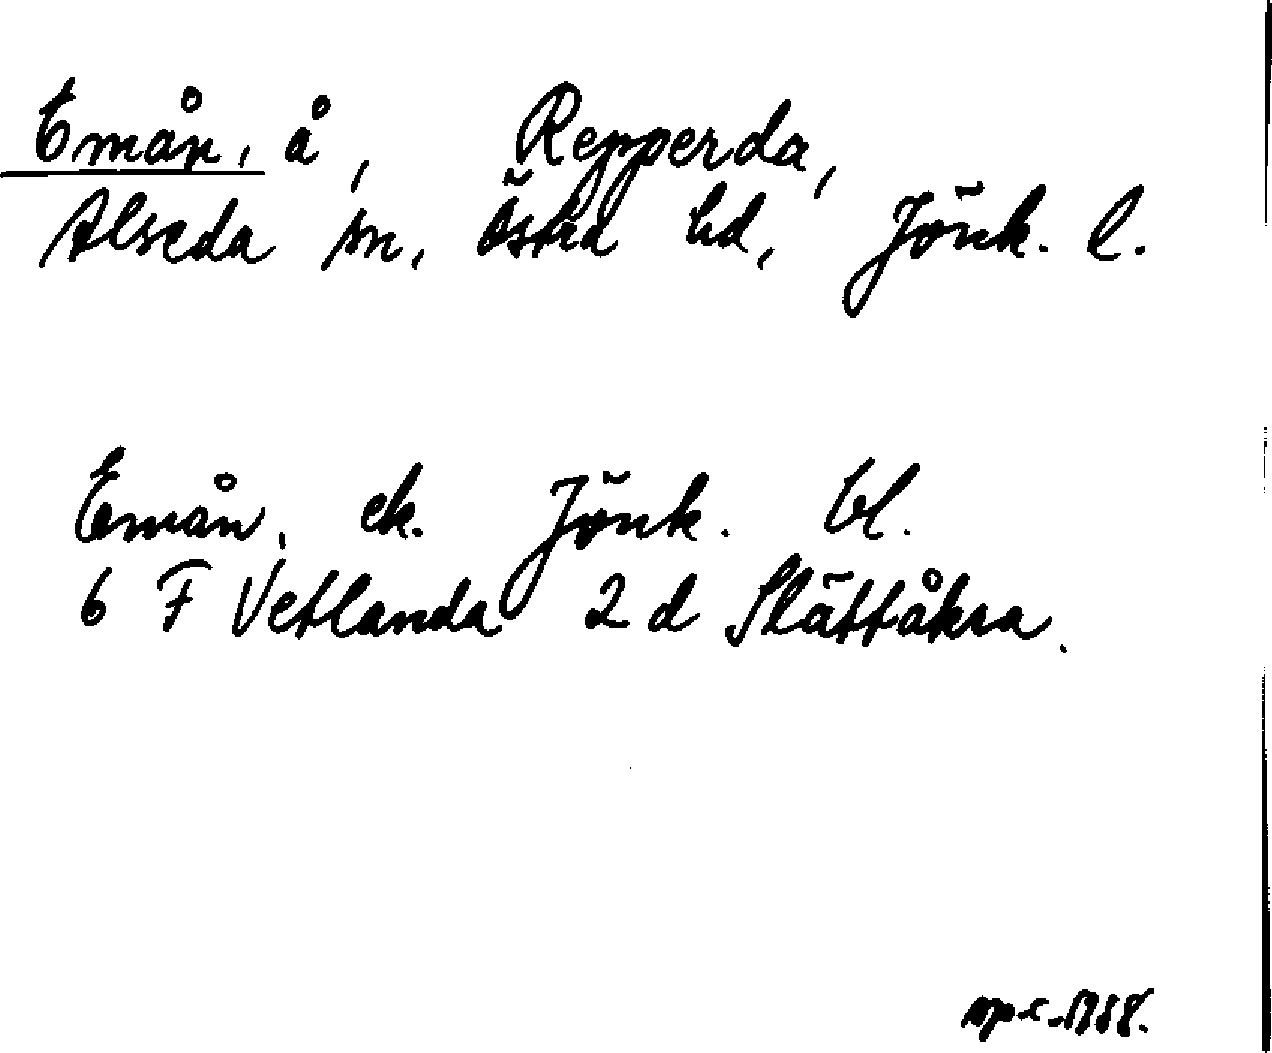 Emån, å, Repperda,
Alseda sn, Östra hd, Jönk. l.
Emån, ek. Jönk. bl.
6 F Vetlanda 2 d Slättåkra.
1988.